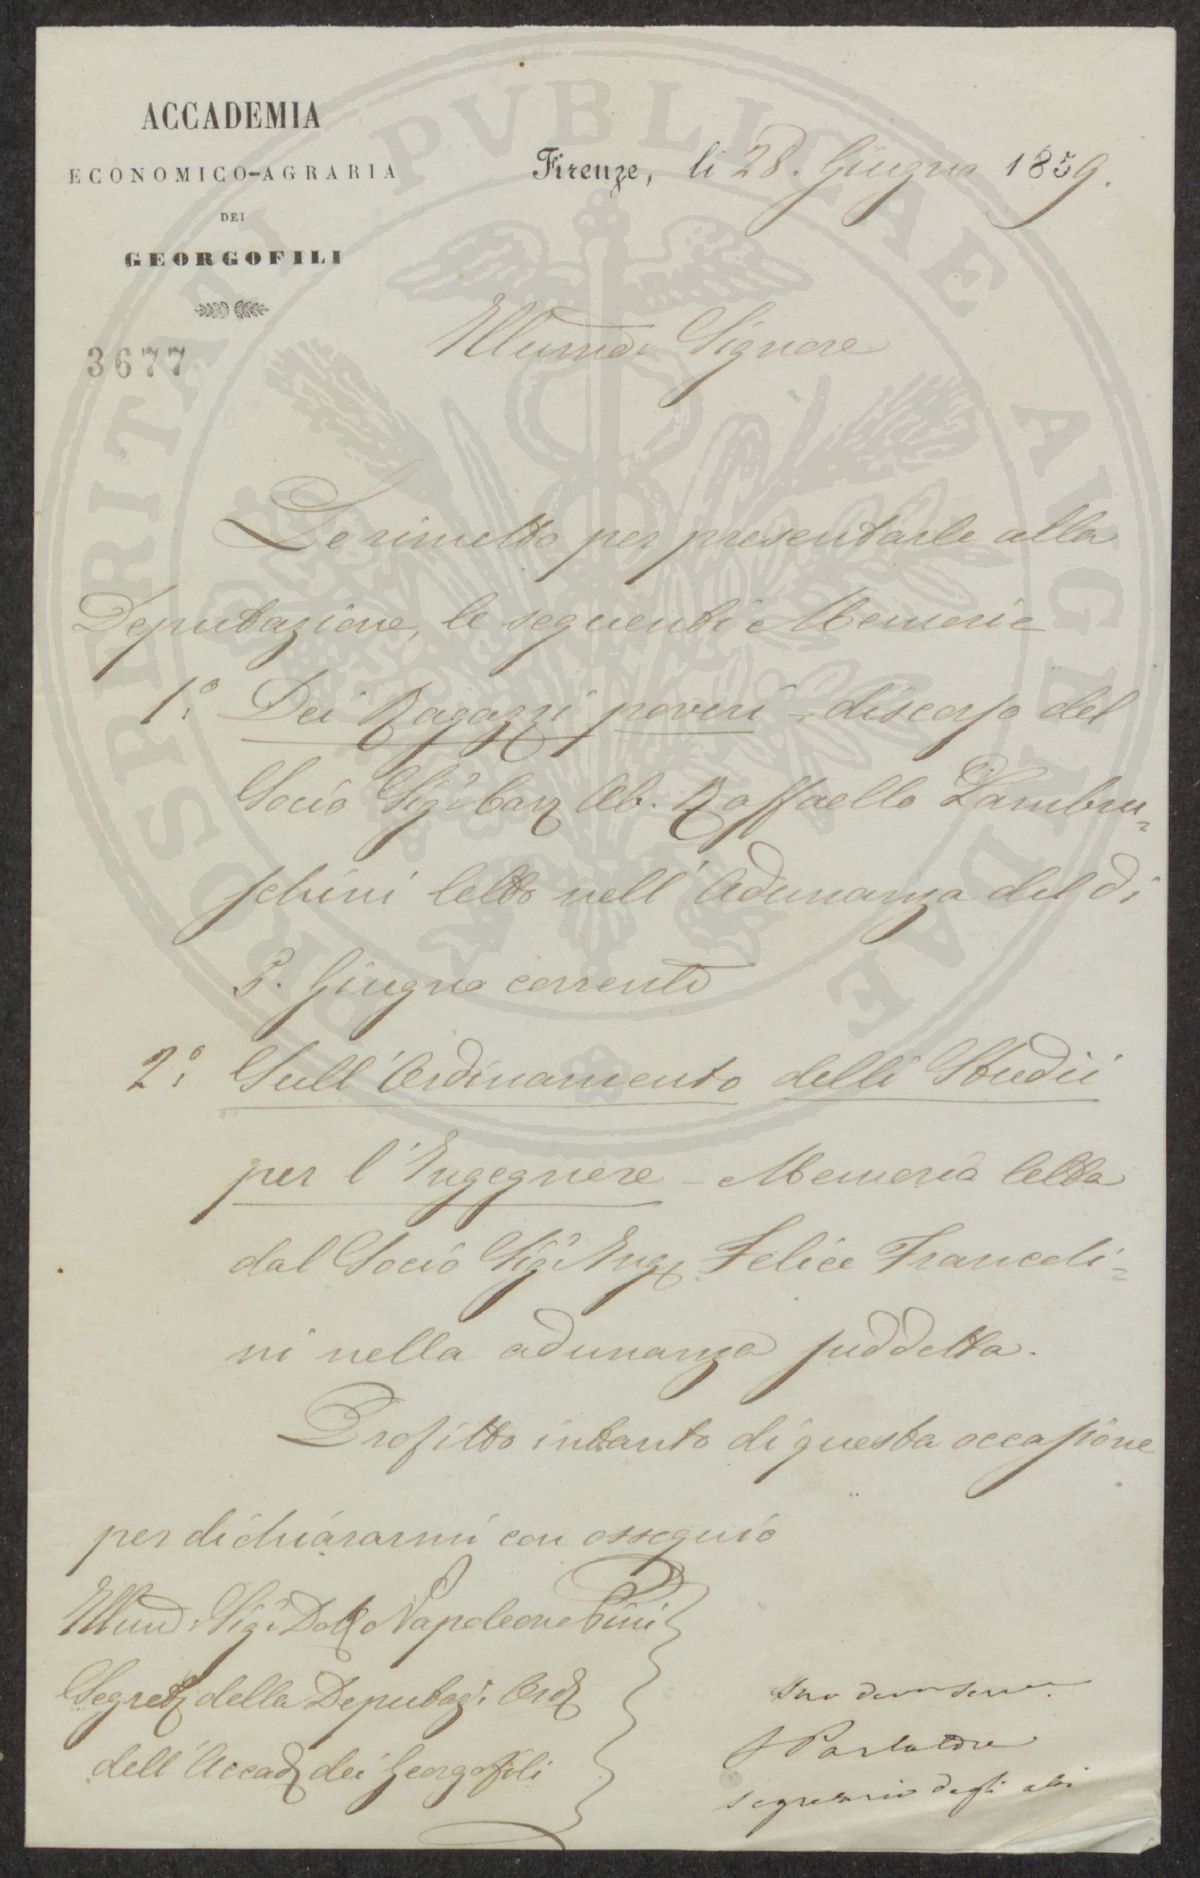 ACCADEMIA
ECONOMICO-AGRARIA
DEI
GEORGOFILI
3677
Firenze, li 28. Giugno 1859.
Illumo: Signore
Le rimetto per presentarle alla
Deputazione, le seguenti Memorie
1º: Dei Ragazzi poveri - discorso del
Socio Sigr: Cav Ab. Raffaello Lambru=
schini letto nell'Adunanza del dì
5. Giugno corrente
2º: Sull'Ordinamento delli Studii
per l'Ingegnere - Memoria letta
dal Socio Sigr: Ing Felice Francoli=
ni nella adunanza suddetta.
Profitto intanto di questa occasione
per dichiararmi con ossequio
Illumo: Sigr: Dott Napoleone Pini
Segret della Deputaz: Ord
dell'Accad dei Georgofili
Suo devmo servo
F Parlatore
segretario degli atti
PROSPERITATI PVBLICAE AVGENDAE